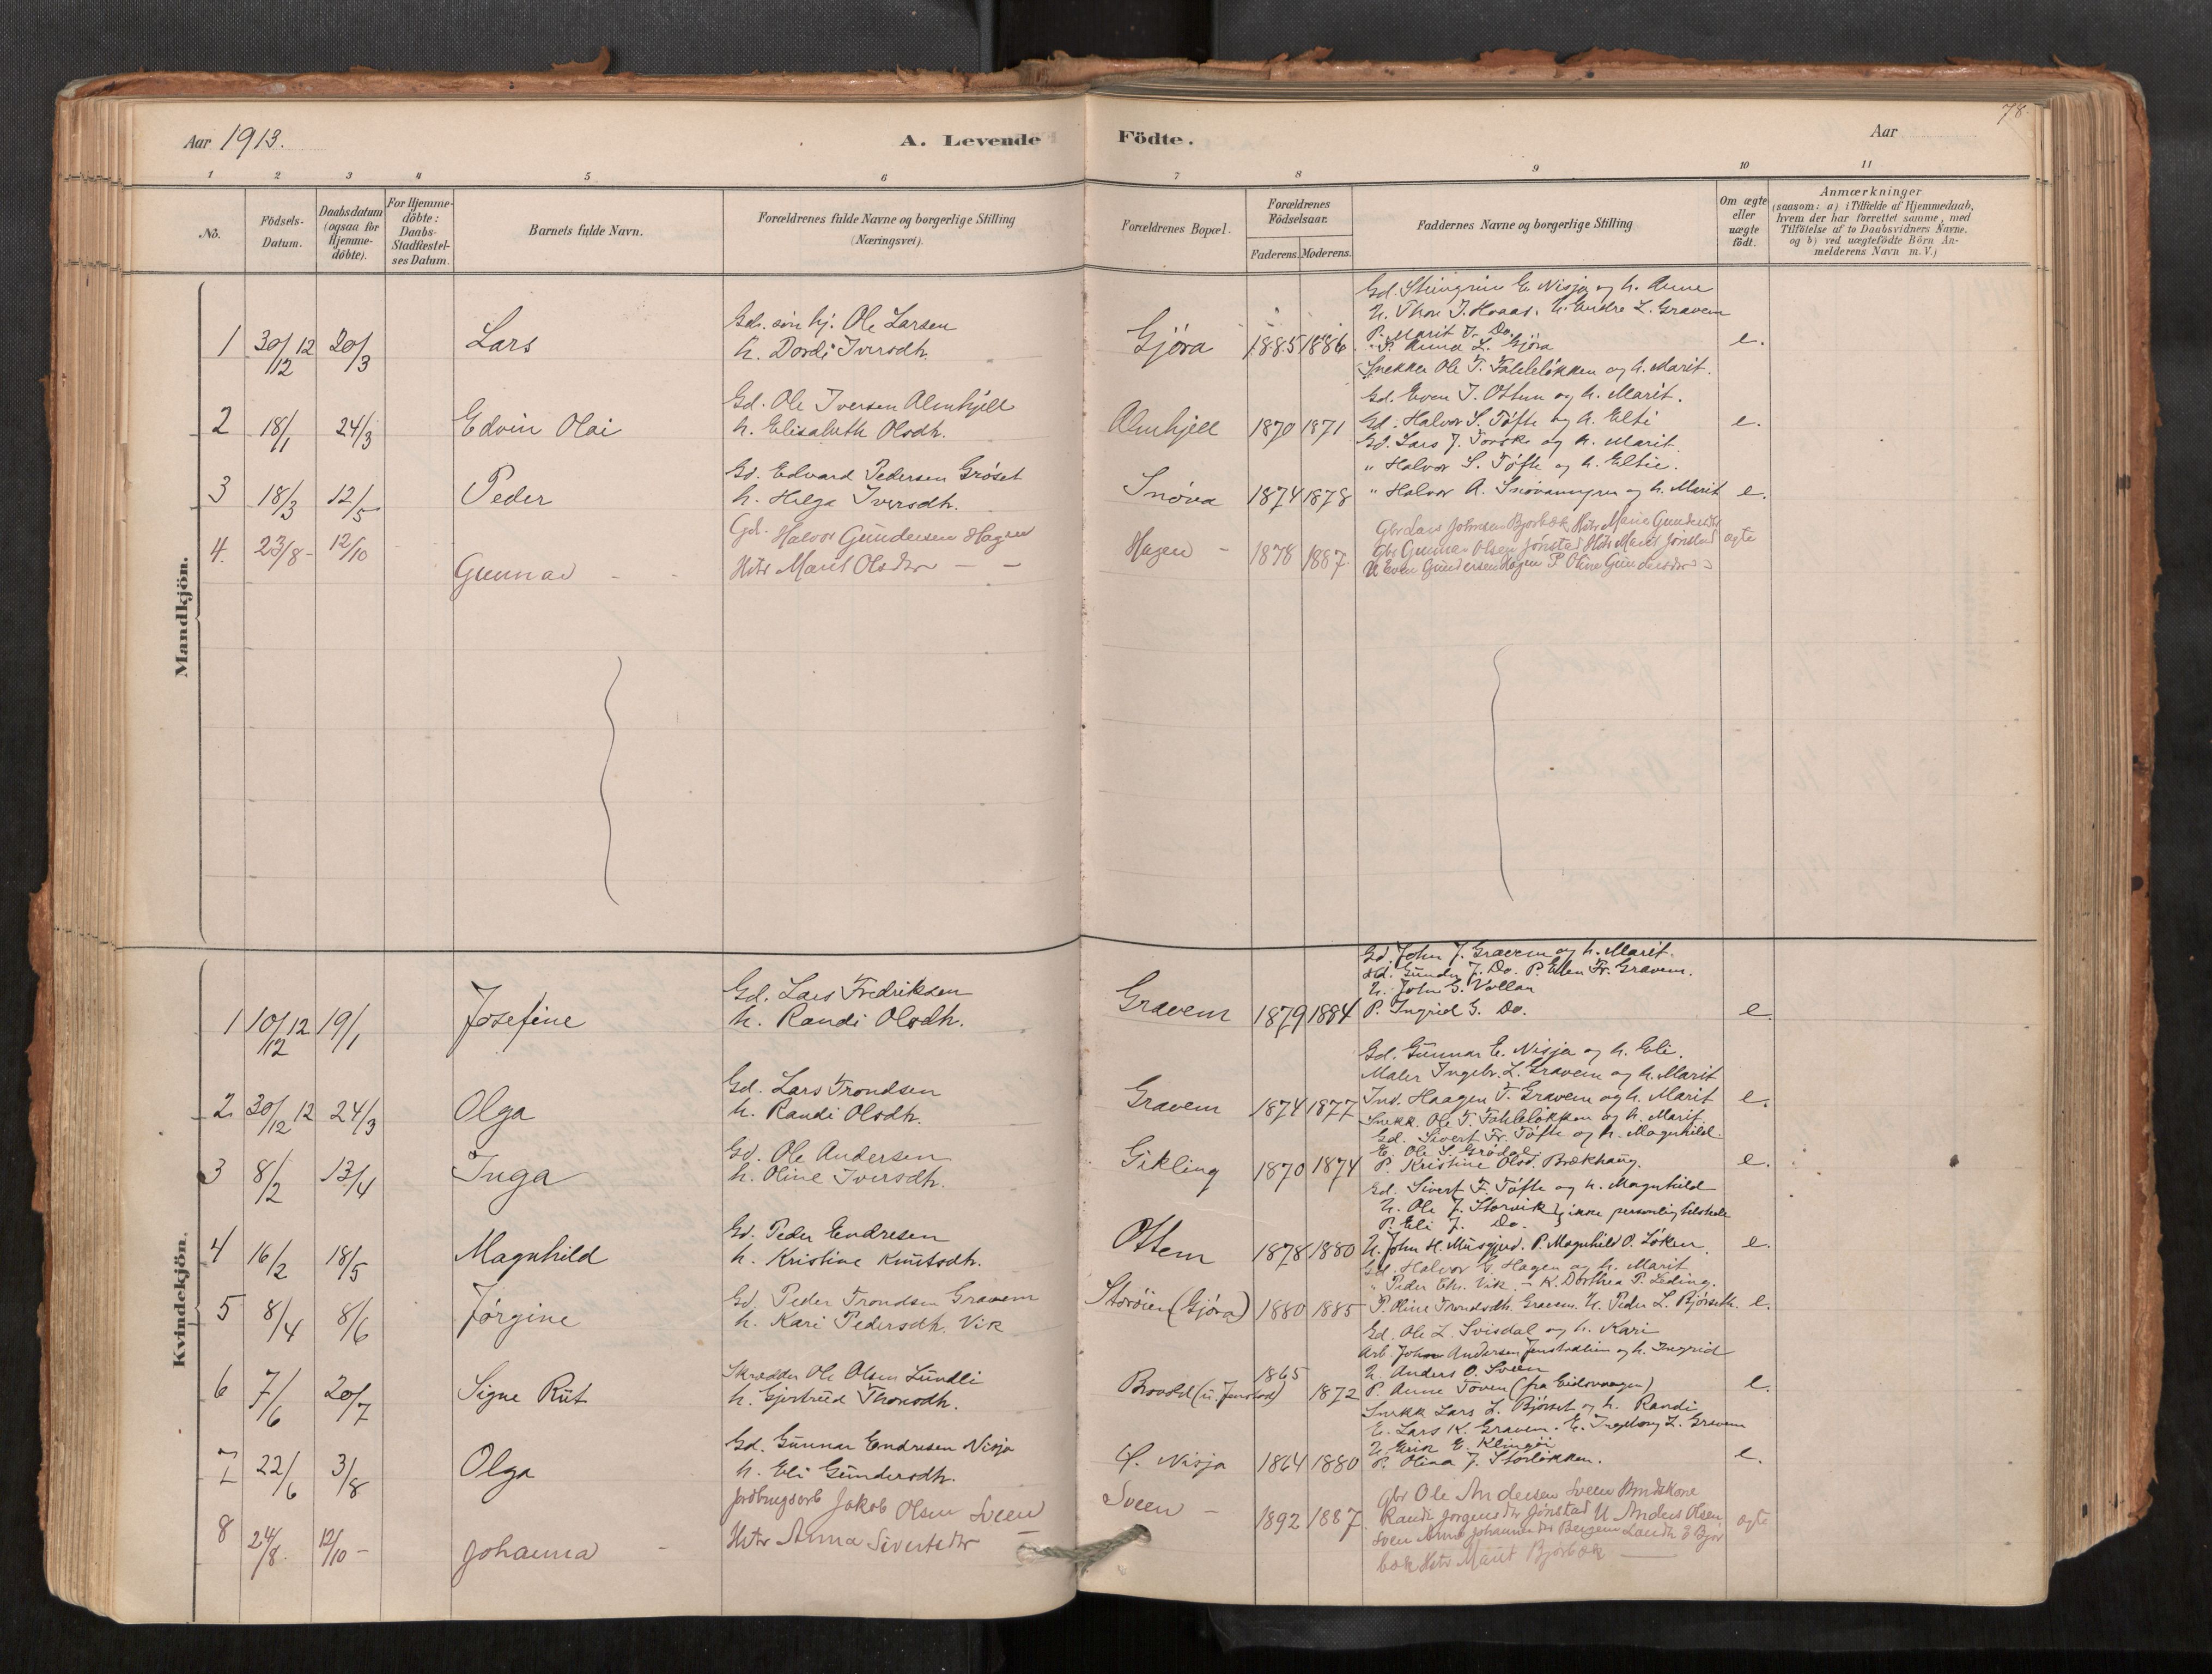 78.
Aar 1913.
A. Levende Födte.
Aar
1 2 3 4 5 6 7 8 9 10 11
No.
Födsels-Datum.
Daabsdatum (ogsaa for Hjemme-döbte).
For Hjemme-döbte: Daabs-Stadfæstel-ses Datum.
Barnets fulde Navn.
Forældrenes fulde Navne og borgerlige Stilling
(Næringsvei).
Forældrenes Bopæl.
Forældrenes Födselsaar.
Faderens. Moderens.
Faddernes Navne og borgerlige Stilling
Om ægte eller uægte födt.
Anmærkninger
(saasom: a) i Tilfælde af Hjemmedaab,
hvem der har forrettet samme, med
Tilföielse af to Daabsvidners Navne.
og b) ved uægtefödte Börn An-
melderens Navn m.V.)
Mandkjön.
1 30/12 12 20/3 Lars
Gdr. søn hj. Ole Larsen
h. Dordi Iversdtr.
Gjöra 1885 1886
Gd. Steingrim E. Nisja og h. Anne
U. Thore J. Hoaas. U. Endre L. Gravem
P. Marit J. Do.
P. Anna L. Gjöra
Snekker Ole T. Fahleløkken og h. Marit.
e.
2 18/1 24/3 Edvin Olai
Gd. Ole Iversen Almhjell
h. Elisabeth Olsdtr.
Almhjell 1870 1871
Gd. Even J. Ottem og h. Marit.
Gd. Halvor S. Tøfte og h. Elti
Gd. Lars J. Torske og h. Marit
e.
3 18/3 12/5 Peder
Gd. Edvard Pedersen Grøset
h. Helga Iversdtr.
Snøva 1874 1878
" Halvor S. Tøfte og h. Eltie.
" Halvor A. Snøvamyren og h. Marit
e.
4. 23/8 12/10 Gunnar
Gd. Halvor Gundersen Hagen
Hstr Marit Olsdtr
Hagen 1878 1887
Gbr Lars Johnsen Bjørbæk Hstr Marie Gundersdtr
Gbr Gunnar Olsen Jønstad Hstr Marit Jønstad
U Even Gundersen Hagen P Oline Gundersdtr
ægte
Kvindekjön.
1 10/12 12 19/1 Josefine
Gd. Lars Fredriksen
h. Randi Olsdtr.
Gravem 1879 1884
Gd. John J. Gravem og h. Marit.
Gd. Gunder J. Do. P. Ellen Fr. Gravem.
U. John G. Vollan
P. Ingrid G. Do.
e.
2. 30/12 12 24/3 Olga
Gd. Lars Trondsen
h. Randi Olsdtr.
Gravem 1874 1877
Gd. Gunnar E. Nisja og h. Eli.
Maler Ingebr. L. Gravem og h. Marit
Ind. Haagen T. Gravem og h. Marit
Snekk. Ole T. Fahleløkken og h. Marit
e.
3 8/2 13/4 Inga
Gd. Ole Andersen
h. Oline Iversdtr.
Gikling 1870 1874
Gd. Sivert Fr. Tøfte og h. Magnhild.
E. Ole S. Grødal
P. Kristine Olsd. Brækhaug.
e.
4 16/2 18/5 Magnhild
Gd. Peder Endresen
h. Kristine Knutsdtr.
Ottem 1878 1880
Gd. Sivert F. Tøfte og h. Magnhild
U. Ole J. Storvik } ikke personlig tilstede
P. Eli J. Do.
U. John H. Musgjerd. P. Magnhild O. Løken.
e.
5 8/4 8/6 Jørgine
Gd. Peder Trondsen Gravem
h. Kari Pedersdtr. Vik
Storøien (Gjöra) 1880 1885
Gd. Halvor G. Hagen og h. Marit
" Peder Ek. Vik. - K. Dorthea P. Leding.
P. Oline Trondsdtr. Gravem. U. Peder L. Bjørseth.
e.
6 7/6 20/7 Signe Rut
Skrædder Ole Olsen Lundli
h. Gjertrud Thoresdtr.
Brovold (u. Jenstad) 1865 1872
Gd. Ole L. Svisdal og h. Kari
Arb. John Andersen Jenstadlien og h. Ingrid
U. Anders O. Sveen
P. Anne Toven (fra Eidsvaagen)
e.
7 22/6 3/8 Olga
Gd. Gunnar Endresen Nisja
h. Eli Gundersdtr.
Nisja 1864 1880
Snekk Lars L. Bjørset og h. Randi
E. Lars K. Gravem. E. Ingeborg L. Gravem
U. Erik E. Klingøi
P. Olina J. Storløkken.
e.
8 24/8. 12/10 Johanna
Jordbrugsarb Jakob Olsen Sveen
Hstr Anna Sivertsdtr
Sveen 1892 1887
Gbr Ole Andersen Sveen
Randi Jørgensdtr Jønstad U Anders Olsen
Sveen Anne Johannesdtr
bæk Hstr Marit Bjørbæk
ægte